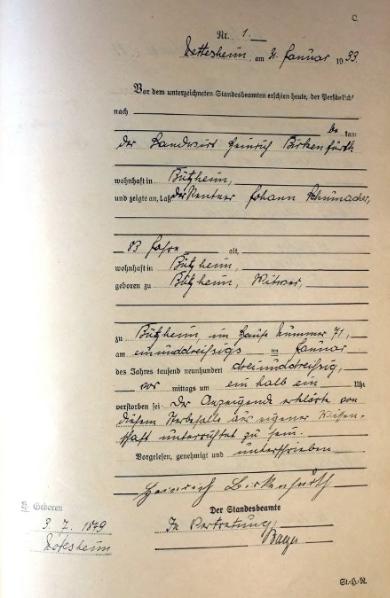 C.
Nr. 1.
Nettesheim, am 31. Januar 1933.
Vor dem unterzeichneten Standesbeamten erschien heute, der Persönlichkeit
nach
be kannt,
der Landwirt Heinrich Birkenfurth
wohnhaft in Bützheim,
und zeigte an, daß der Rentner Johann Schumacher,
83 Jahre alt,
wohnhaft in Bützheim,
geboren zu Bützheim, Witwer,
zu Bützheim, im Hause Nummer 71,
am einunddreißigs ten Januar
des Jahres tausend neunhundert dreiunddreißig,
vor mittags um ein halb ein Uhr
verstorben sei. Der Anzeigende erklärte von
diesem Sterbefalle aus eigener Wissen-
schaft unterrichtet zu sein.
Vorgelesen, genehmigt und unterschrieben
Heinrich Birkenfurth
Der Standesbeamte
In Vertretung,
Geboren
3. 7. 1849
St.-H.-R.